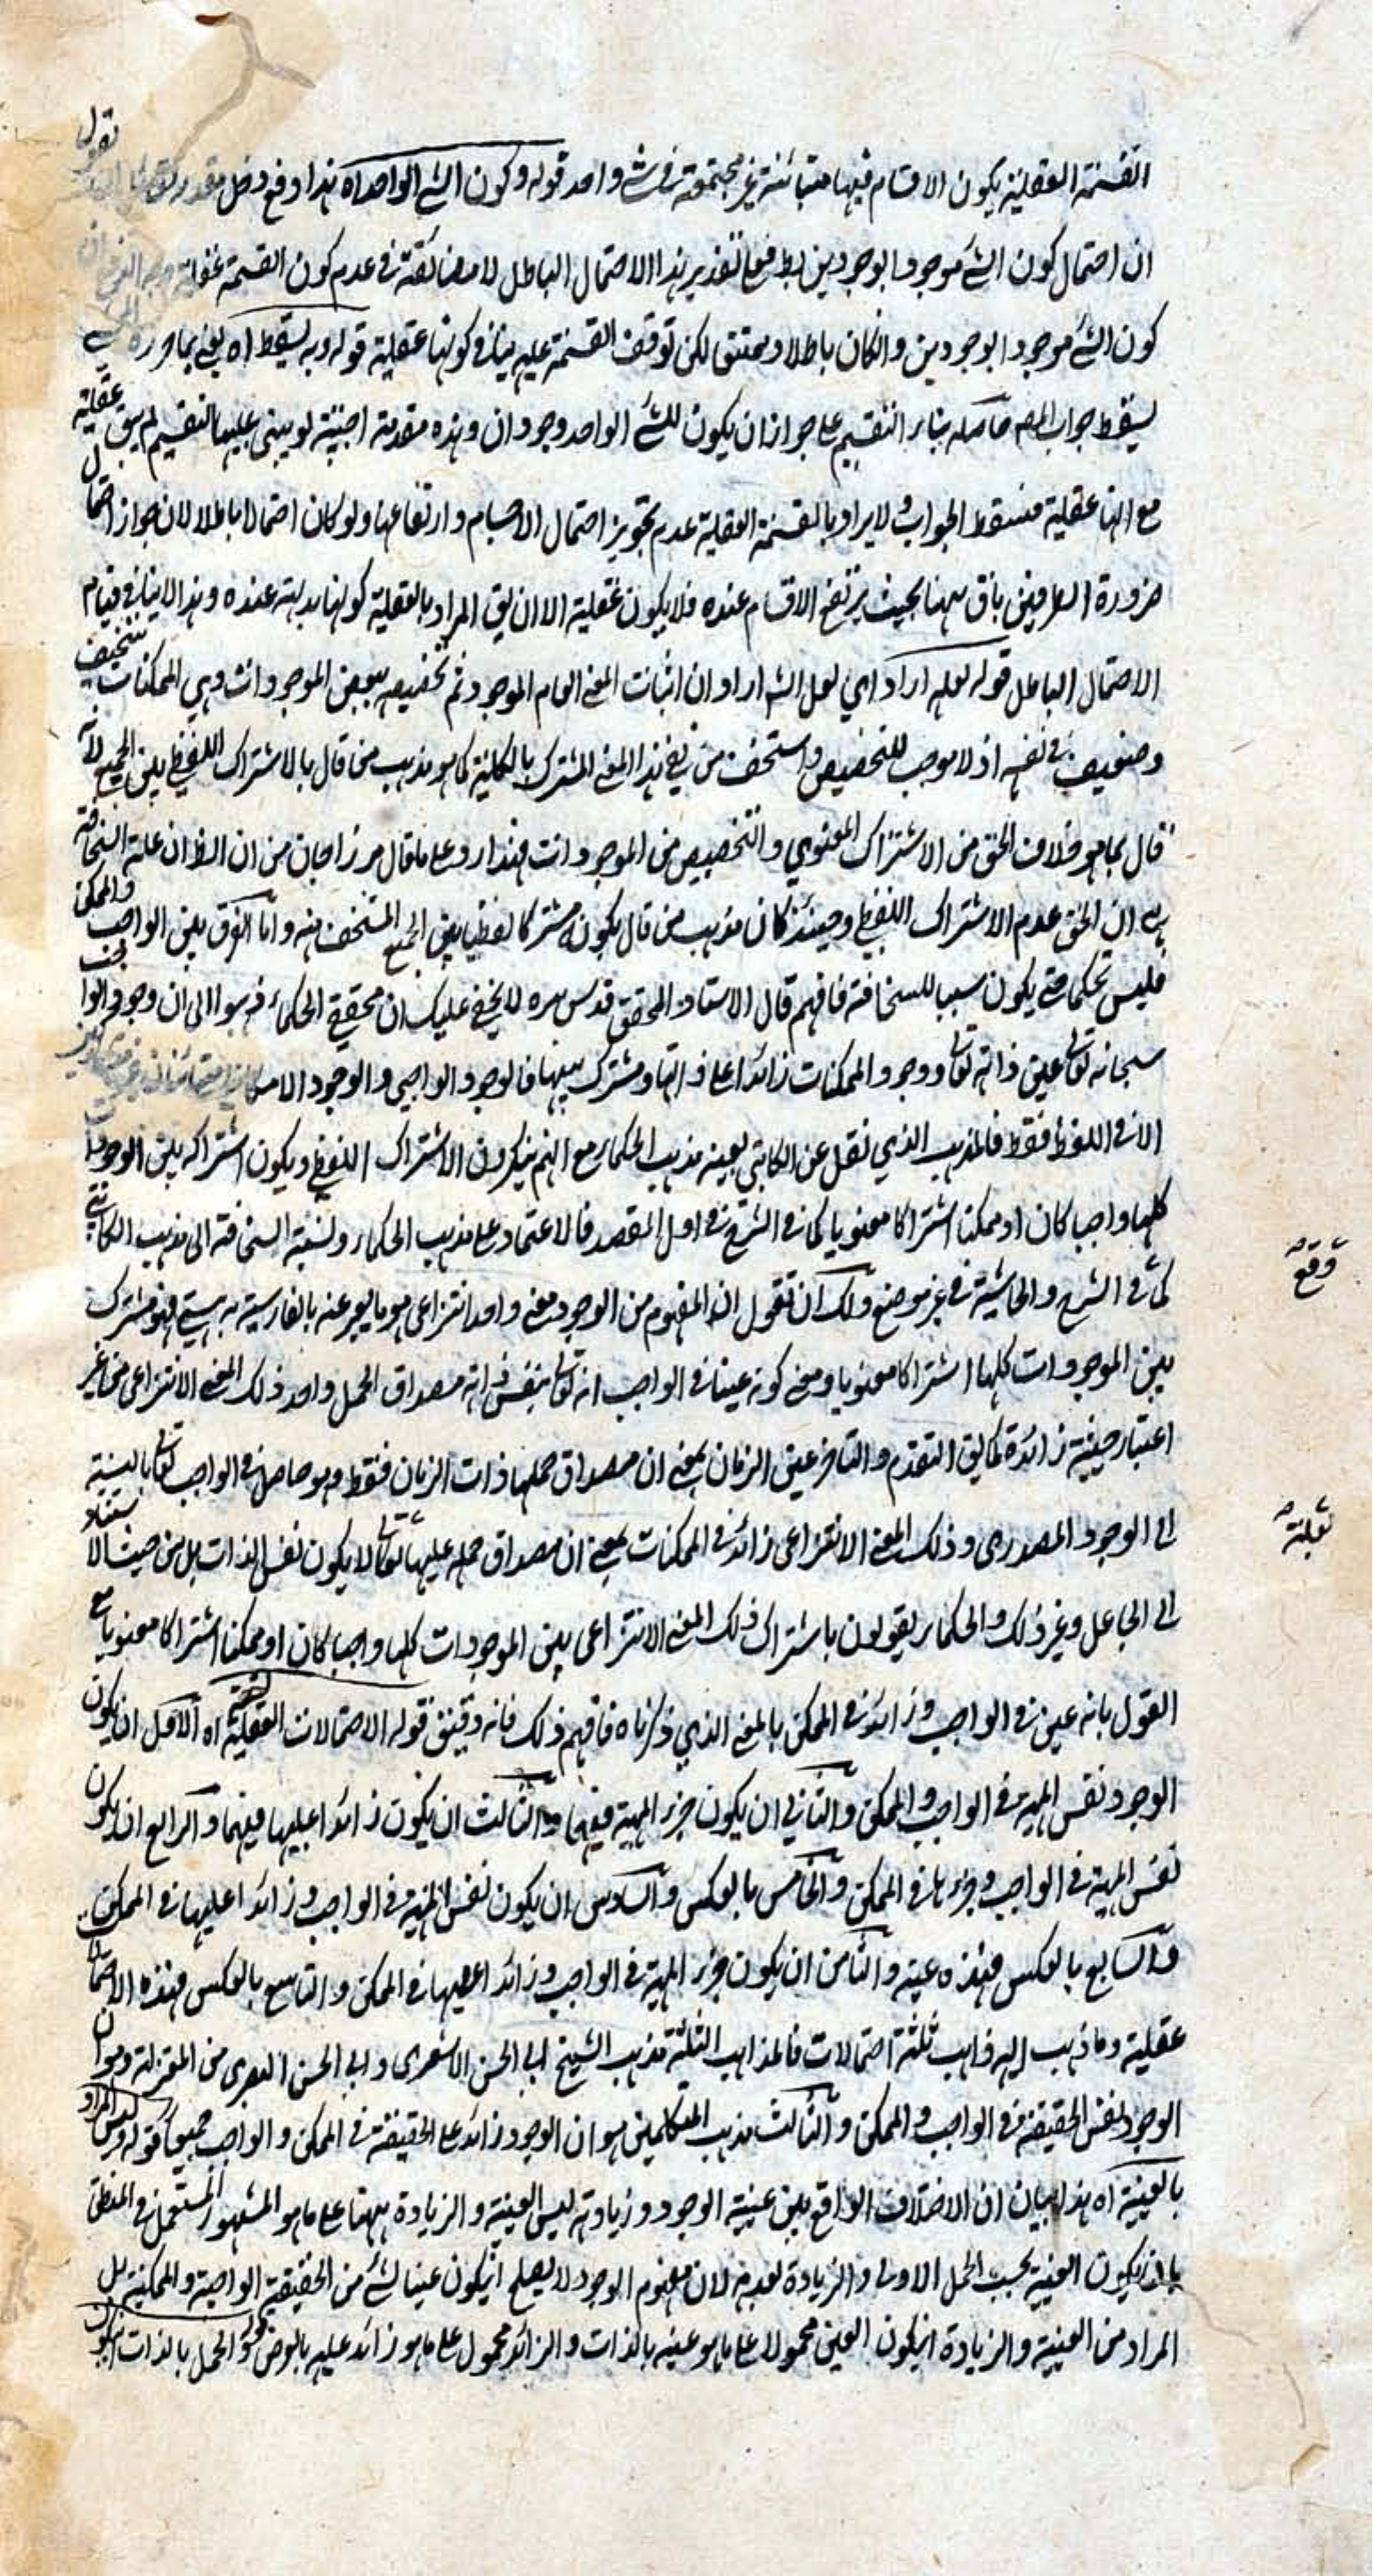 القسمة العقلية يكون الاقسام فيها متبائنة غير مجتمعة في شئ واحد قوله وكون الشئ الواحد اه هذا دفع دخل مقدر تقول
ان احتمال كون الشئ موجودا بوجودين بط فعلى تقدير هذا الاحتمال الباطل لا مضائقة في عدم كون القسمة عقلية
كون الشئ موجودا بوجودين وانكان باطلا وممتنع لكن توقف القسمة عليه ينافي كونها عقلية قوله وبه يسقط اه يعني بما حرره
يسقط جواب المص حاصله بناء التقسيم على جواز ان يكون للشئ الواحد وجودان وهذه مقدمة اجنبية لو يبنى عليها التقسيم لم يبق عقلية
مع انها عقلية فسقط الجواب ولا يراد بالقسمة العقلية عدم تجويز احتمال الاقسام وارتفاعها ولو كان احتمالا باطلا لان جواز احتمال
ضرورة الطرفين باق ههنا بحيث يرتفع الاقسام عنده فلا يكون عقلية الا ان يق المراد بالعقلية كونها بديهته عنده وهذا لا ينافي قيام
الاحتمال الباطل قوله لعله اراد اي لعل الشه اراد ان اثبات المعنى العام الموجود ثم تخصيصه ببعض الموجودات وهي الممكنات سخيف
وضعيف في نفسه اذ لا موجب للتخصيص واسخف من نفي هذا المعنى المشترك بالكلية كما هو مذهب من قال بالاشتراك اللفظي بين الجميع لانه
قال بما هو خلاف الحق من الاشتراك المعنوي والتخصيص من الموجودات فهذا رد على ما قال مرزاجان من ان الظ ان علة السخافة
هي ان الحق عدم الاشتراك اللفظي وحينئذ كان مذهب من قال بكون مشتركا لفظيا بين الجميع اسخف منه واما الفرق بين الواجب والممكن
فليس تحكما حتى يكون سببا للسخافة فافهم قال الاستاد المحقق قدس سره لا يخفى عليك ان محققي الحكماء ذهبوا الى ان وجود الواجب
سبحانه تعالى عين ذاته تعالى ووجود الممكنات زائدا على ذواتها ومشترك بينها فالوجود الواجبي والوجود الامكاني
الا في اللفظ فقط فالمذهب الذي نقل عن الكاتبي بعينه مذهب الحكماء مع انهم ينكرون الاشتراك اللفظي ويكون اشتراكه بين الوجودات
كلها واجبا كان او ممكنا اشتراكا معنويا كما في الشرح في اول المقصد فالاعتماد على مذهب الحكماء ونسبة السخافة الى مذهب الكاتبي
كما في الشرح والحاشية في غير موضع ولك ان تقول ان المفهوم من الوجود معنى واحد انتزاعي هو ما يعبر عنه بالفارسية به هستي فهو مشترك
بين الموجودات كلها اشتراكا معنويا ومعنى كونه عينا في الواجب انه تعالى بنفس ذاته مصداق الحمل واحد ذلك المعنى الانتزاعي من غير
اعتبار حيثية زائدة كما يق التقدم والتاخر عين الزمان بمعنى ان مصداق حملها ذات الزمان فقط وهو حاصل في الواجب تعالى بالنسبة
الى الوجود المصدري وذلك المعنى الانتزاعي زائد في الممكنات بمعنى ان مصداق حمله عليها لا يكون نفس الذات بل من حيث الاستناد
الى الجاعل وغير ذلك والحكماء يقولون باشتراك ذلك المعنى الانتزاعي بين الموجودات كلها واجبا كان او ممكنا اشتراكا معنويا مع
القول بانه عين في الواجب وزائد في الممكن بالمعنى الذي ذكرناه فافهم ذلك فانه دقيق قوله الاحتمالات العقلية اه الاول ان يكون
الوجود نفس المهية في الواجب والممكن والثاني ان يكون جزء المهية فيهما والثالث ان يكون زائدا عليها فيهما والرابع ان يكون
نفس المهية في الواجب وجزءها في الممكن والخامس بالعكس والسادس ان يكون نفس المهية في الواجب وزائدا عليها في الممكن
والسابع بالعكس فهذه عينه والثامن ان يكون جزء المهية في الواجب وزائدا عليها في الممكن والتاسع بالعكس فهذه الاحتمالات
عقلية وما ذهب اليه ذاهب ثلثة احتمالات فالمذاهب الثلثة مذهب الشيخ ابي الحسن الاشعري وابي الحسن البصري من المعتزلة وهو ان
الوجود نفس الحقيقة في الواجب والممكن والثالث مذهب المتكلمين هو ان الوجود زائد على الحقيقة في الممكن والواجب جميعا قوله وليس المراد
بالعينية اه هذا بيان ان الاختلاف الواقع بين عينية الوجود وزيادته ليس العينية والزيادة ههنا على ما هو المشهور المستعمل في المنطق
بان يكون العينية بحسب الحمل الاولى والزيادة لعدمه لان مفهوم الوجود لا يصلح ان يكون عينا لشئ من الحقيقة الواجبة والممكنة بل
المراد من العينية والزيادة ان يكون العين محمولا على ما هو عينه بالذات والزائد محمول على ما هو زائد عليه بالعرض وكون الحمل بالذات ان يكون
وقع